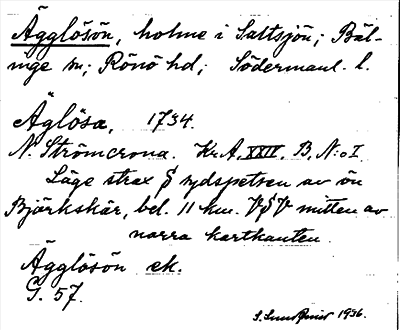 Ägglösön, holme i Saltsjön; Bäl-
inge sn; Rönö hd; Södermanl. l.
Äglösa, 1734.
N. Strömcrona. Kr.A. XXII. B. N:o I
Läge strax S sydspetsen av ön
Björkskär, bel. 11 km. VSV mitten av
norra kartkanten.
Ägglösön ek.
G. 57.
1936.